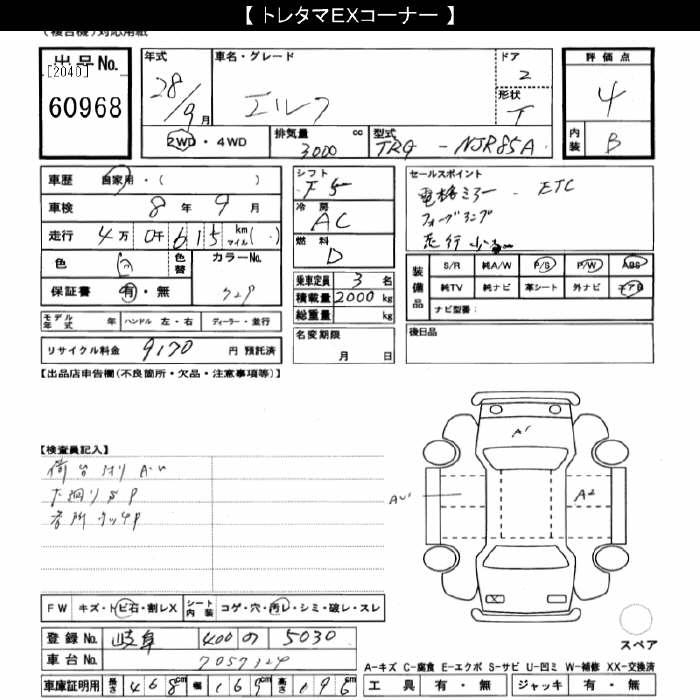 【 トレタマEXコーナー 】
(複合機)対応用紙
出品No.
[2040]
60968
年式
28/9月
車名・グレード
エルフ
ドア
2
形状
T
評価点
4
内装
B
2WD・4WD
排気量
3000 cc
型式
TRG - NJR85A
車歴 自家用・( )
車検 8年 9月
走行 4万 0千 615 km マイル( )
色 白
色替
カラーNo.
保証書 有・無
モデル年式 年
ハンドル 左・右
ディーラー・並行
リサイクル料金 9170 円 預託済
シフト F5
冷房 AC
燃料 D
乗車定員 3 名
積載量 2000 kg
総重量 kg
名変期限
月 日
セールスポイント
電格ミラー・ETC
フォグランプ
走行少
装備品
S/R 純A/W P/S P/W ABS
純TV 純ナビ 革シート 外ナビ エアB
ナビ型番:
後日品
【出品店申告欄(不良箇所・欠品・注意事項等)】
【検査員記入】
荷台 AU
下廻りSP
各所タッチP
A1
AU1
A2
FW キズ・トビ石・割レX
シート内装 コゲ・穴・汚レ・シミ・破レ・スレ
登録No. 岐阜 400 の 5030
車台No. 7057129
車庫証明用 長さ 468cm 幅 169cm 高さ 196
スペア
A-キズ C-腐食 E-エクボ S-サビ U-凹ミ W-補修 XX-交換済
工具 有・無 ジャッキ 有・無